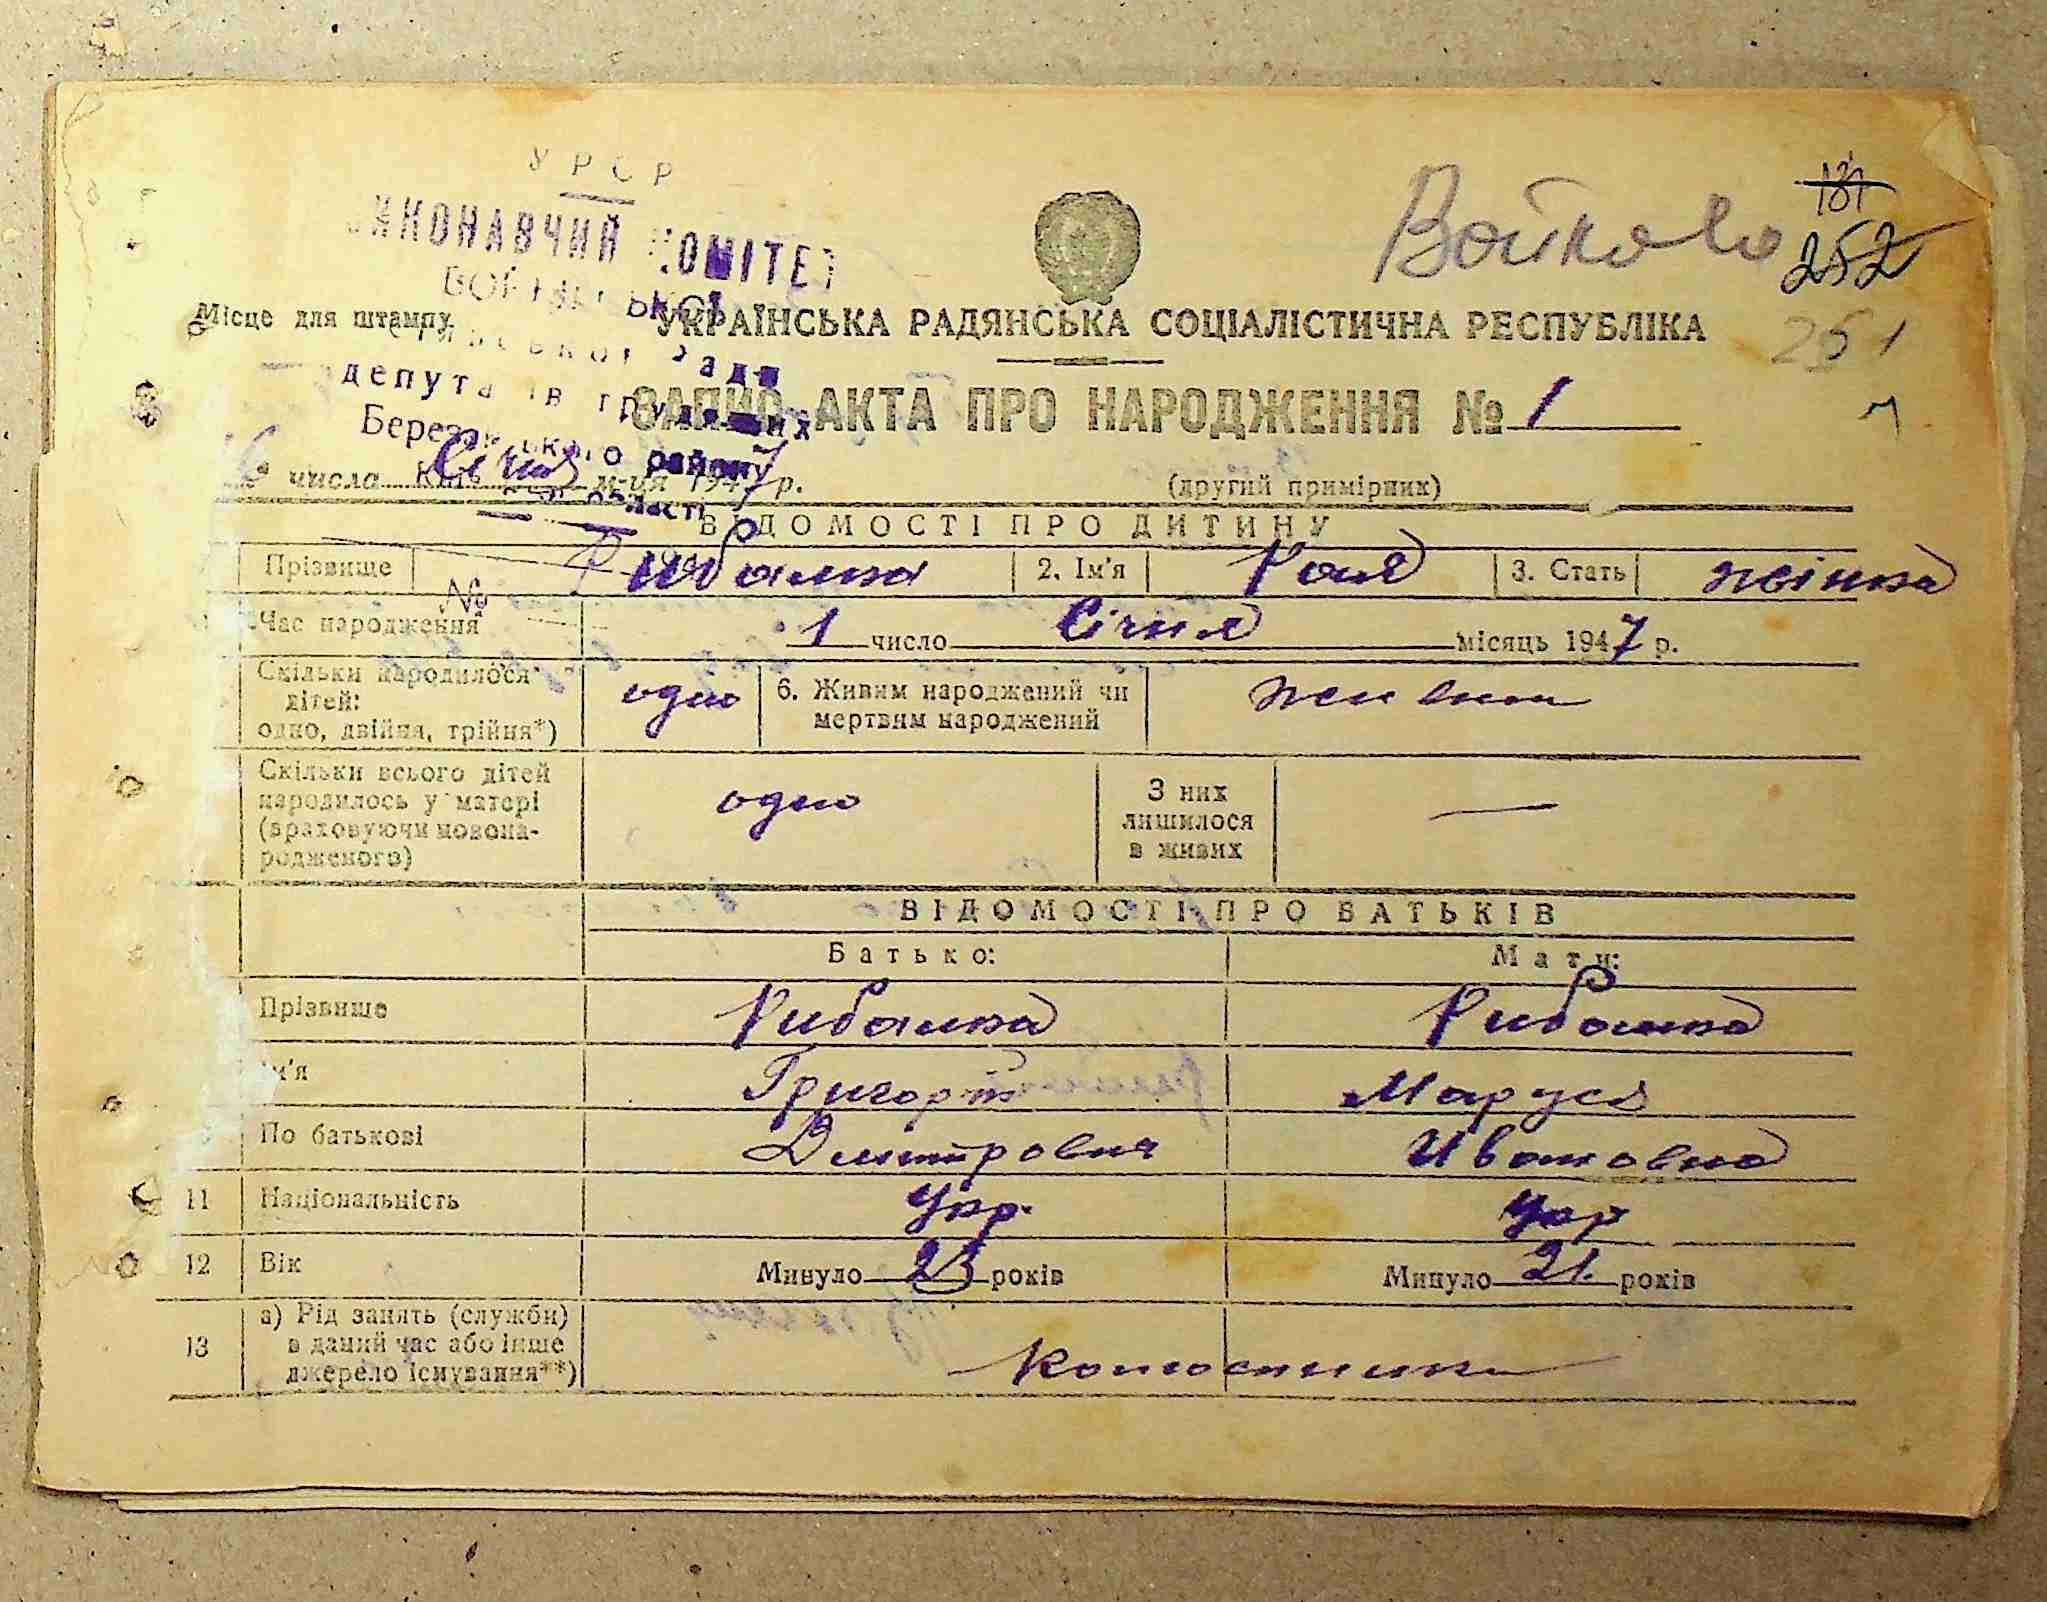 УРСР
Войково
187
252
251
Місце для штампу
УКРАЇНСЬКА РАДЯНСЬКА СОЦІАЛІСТИЧНА РЕСПУБЛІКА
ради
ЗАПИС АКТА ПРО НАРОДЖЕННЯ № 1
району
6 числа Січня м-ця 1947 р.
(другий примірник)
області
ВІДОМОСТІ ПРО ДИТИНУ
Прізвище Рибалка 2. Ім'я Рая 3. Стать жінка
№
Час народження 1 число Січня місяць 1947 р.
Скільки народилося дітей: одно, двійня, трійня*) одно 6. Живим народжений чи мертвим народжений живим
Скільки всього дітей народилось у матері (враховуючи новонародженого) одно З них лишилося в живих —
ВІДОМОСТІ ПРО БАТЬКІВ
Батько: Мати:
Прізвище Рибалка Рибалка
Ім'я Григорій Маруся
По батькові Дмитрович Ивановна
11 Національність Укр. Укр
12 Вік Минуло 23 років Минуло 21. років
13 а) Рід занять (служби) в даний час або інше джерело існування**)